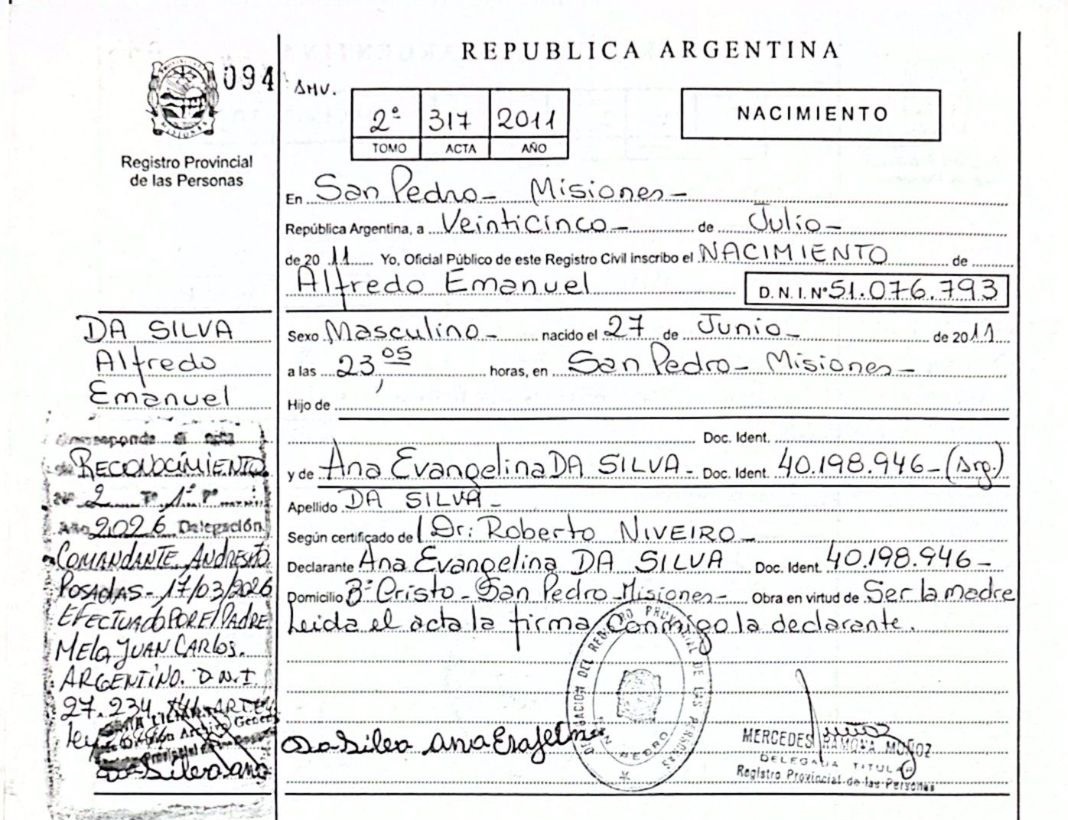 REPUBLICA ARGENTINA
094
Registro Provincial
de las Personas
2º 317 2011
TOMO ACTA AÑO
NACIMIENTO
En San Pedro - Misiones -
República Argentina, a Veinticinco - de Julio -
de 20 11 Yo, Oficial Público de este Registro Civil inscribo el NACIMIENTO de
Alfredo Emanuel D.N.I. Nº 51.076.793
Sexo Masculino - nacido el 27 de Junio - de 2011
a las 23,05 horas, en San Pedro - Misiones -
Hijo de
Doc. Ident.
y de Ana Evangelina DA SILVA - Doc. Ident. 40.198.946 - (Arg.)
Apellido DA SILVA -
Según certificado de Dr: Roberto NIVEIRO -
Declarante Ana Evangelina DA SILVA Doc. Ident. 40.198.946 -
Domicilio Bº Cristo - San Pedro Misiones - Obra en virtud de Ser la madre
Leida el acta la firma Conmigo la declarante.
DA SILVA
Alfredo
Emanuel
Corresponde al acta
de RECONOCIMIENTO
Nº 2 Tº 1º Fº
Año 2026 Delegación
COMANDANTE ANDRESITO
POSADAS - 17/03/2026
EFECTUADO POR EL PADRE
MELO JUAN CARLOS.
ARGENTINO. D.N.I.
27.234
Ley
Da Silva Ana
Da Silva Ana
SAN PEDRO
MERCEDES RAMONA MUÑOZ
DELEGADA TITULAR
Registro Provincial de las Personas